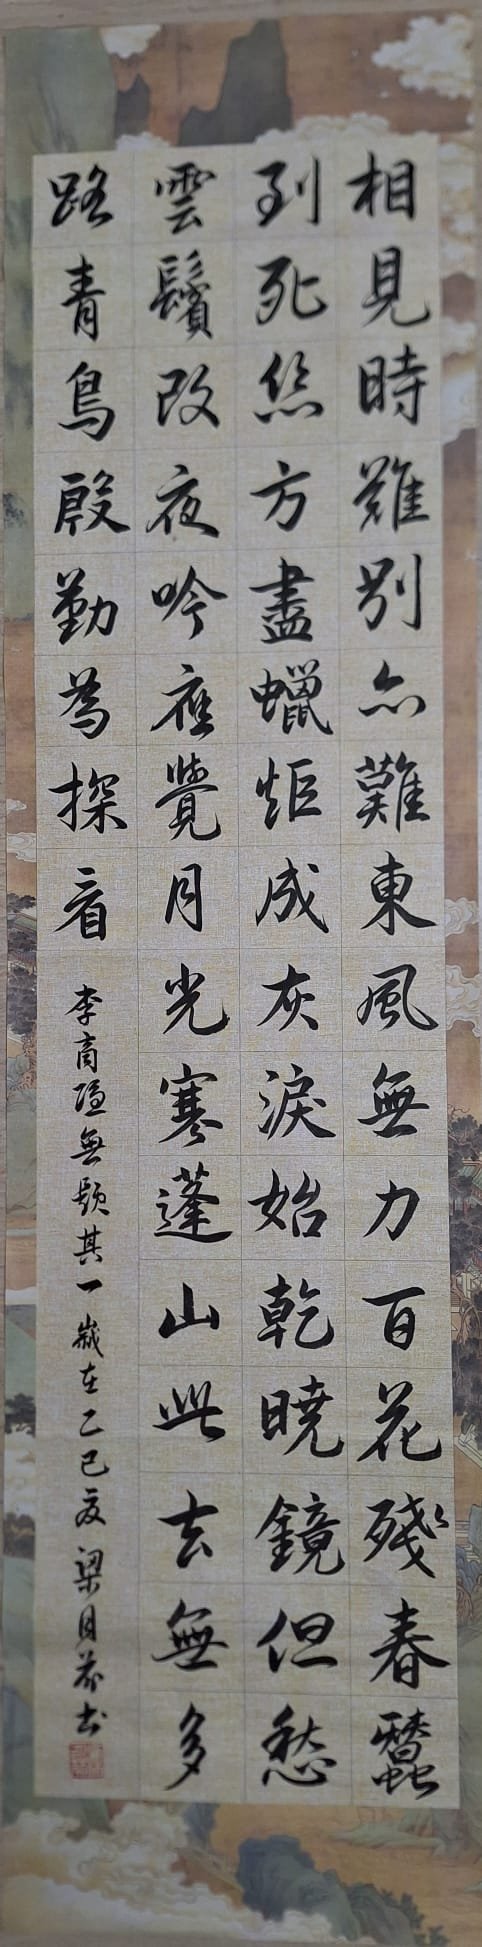 相見時難別亦難東風無力百花殘春蠶
到死絲方盡蠟炬成灰淚始乾曉鏡但愁
雲鬢改夜吟應覺月光寒蓬山此去無多
路青鳥殷勤為探看
李商隱無題其一歲在乙巳夏梁月芬書